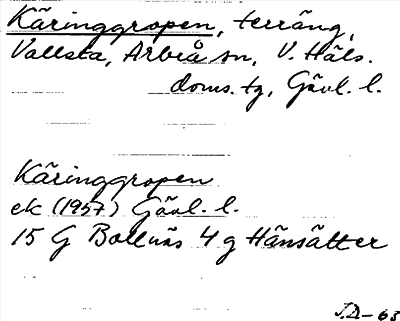 Käringgropen, terräng,
Vallsta, Arbrå sn, V. Häls.
doms. tg, Gävl. l.
Käringgropen
ek (1957) Gävl. l.
15 G Bollnäs 4 g Hänsätter
J.D-63